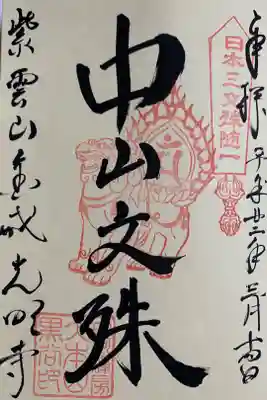 奉拝 平成廿二年三月
日本三文殊随一
中山文殊
紫雲山金戒光明寺
大本山
黒谷印